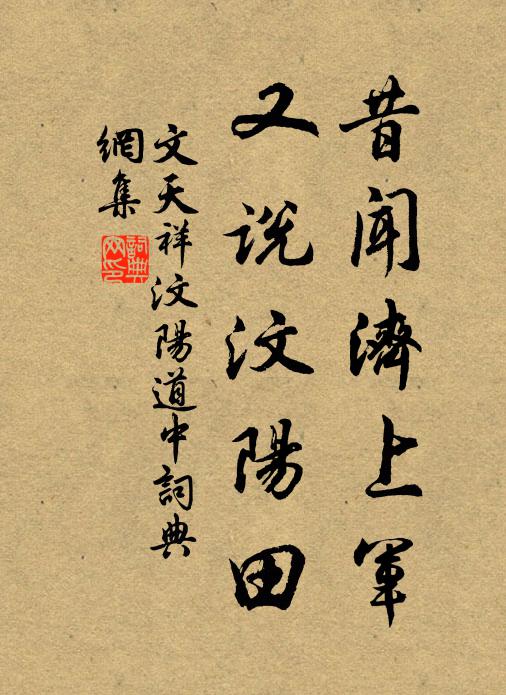 昔聞濟上軍
又說汶陽田
文天祥汶陽道中詞典
網集
詞典網印